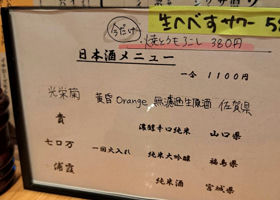 生へべすサワー 5
今だけ 焼とうもろこし 380円
日本酒メニュー
一合 1100円
光栄菊 黄昏Orange 無濾過生原酒 佐賀県
貴 濃醇辛口純米 山口県
七ロ万 一回火入れ 純米大吟醸 福島県
浦霞 純米酒 宮城県